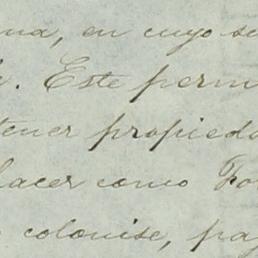 na, en cuyo se
. Este perm
tener propieda
hacer como Fo
colonise, pa